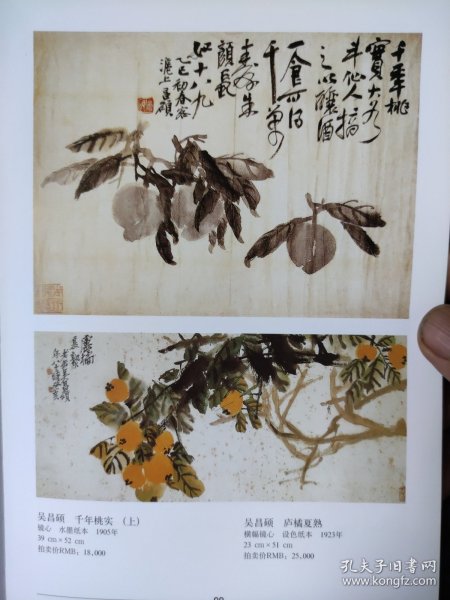 千年桃
實大如
斗仙人摘
之以釀酒
一食可得
千萬
壽朱
顏長
如十八九
乙巳初春客
滬上昌碩
盧橘
夏熟
吴昌硕　千年桃实（上）
镜心　水墨纸本　1905年
39 cm×52 cm
拍卖价RMB：18,000
吴昌硕　庐橘夏熟
横幅镜心　设色纸本　1923年
23 cm×51 cm
拍卖价RMB：25,000
孔夫子旧书网